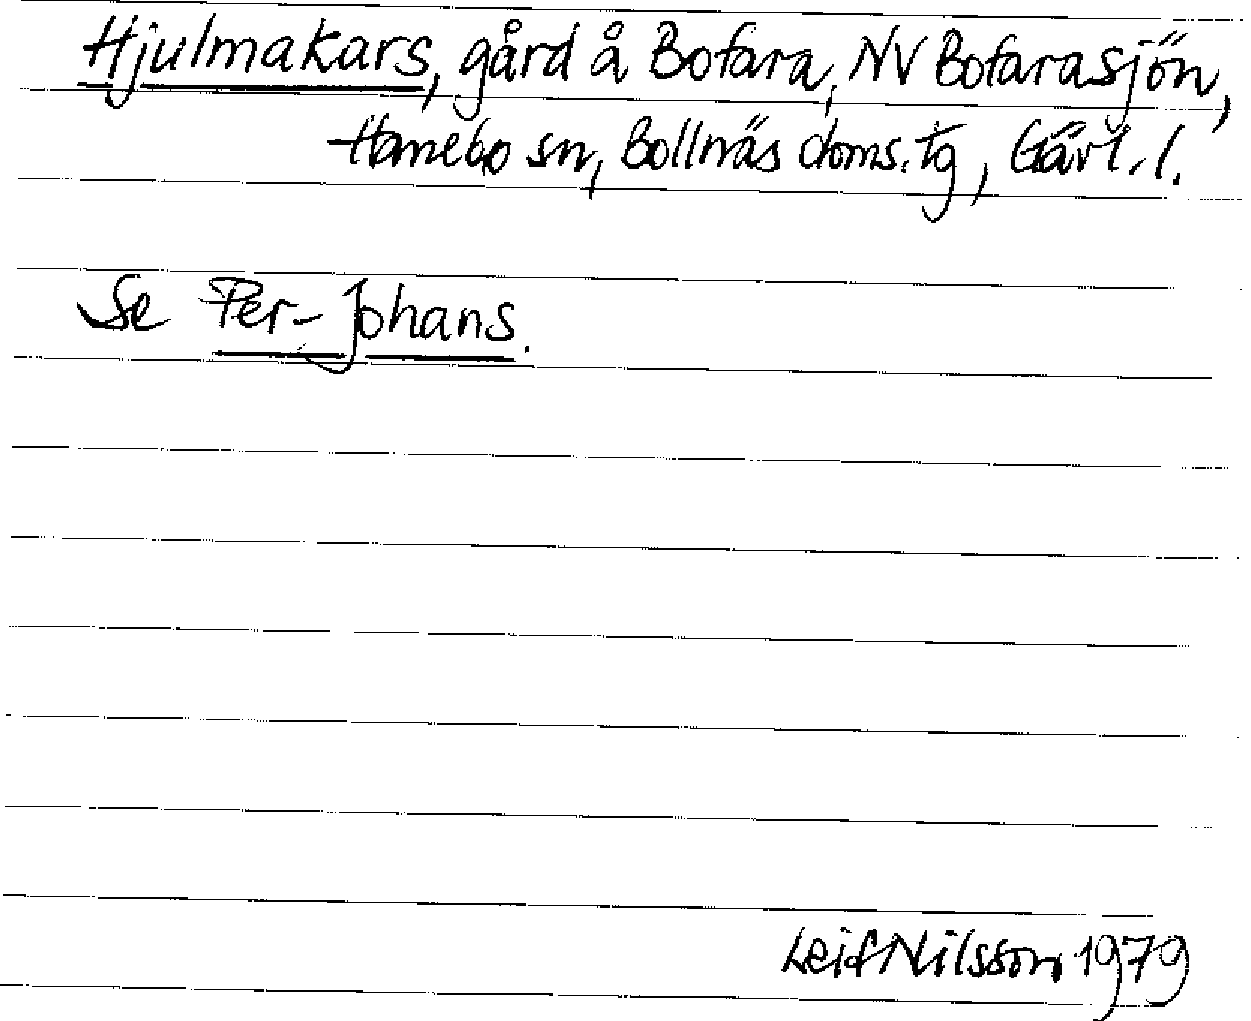 Hjulmakars, gård å Bofara, NV Bofarasjön,
Hanebo sn, Bollnäs doms.tg, Gävl. l.
Se Per-Johans.
Leif Nilsson 1979